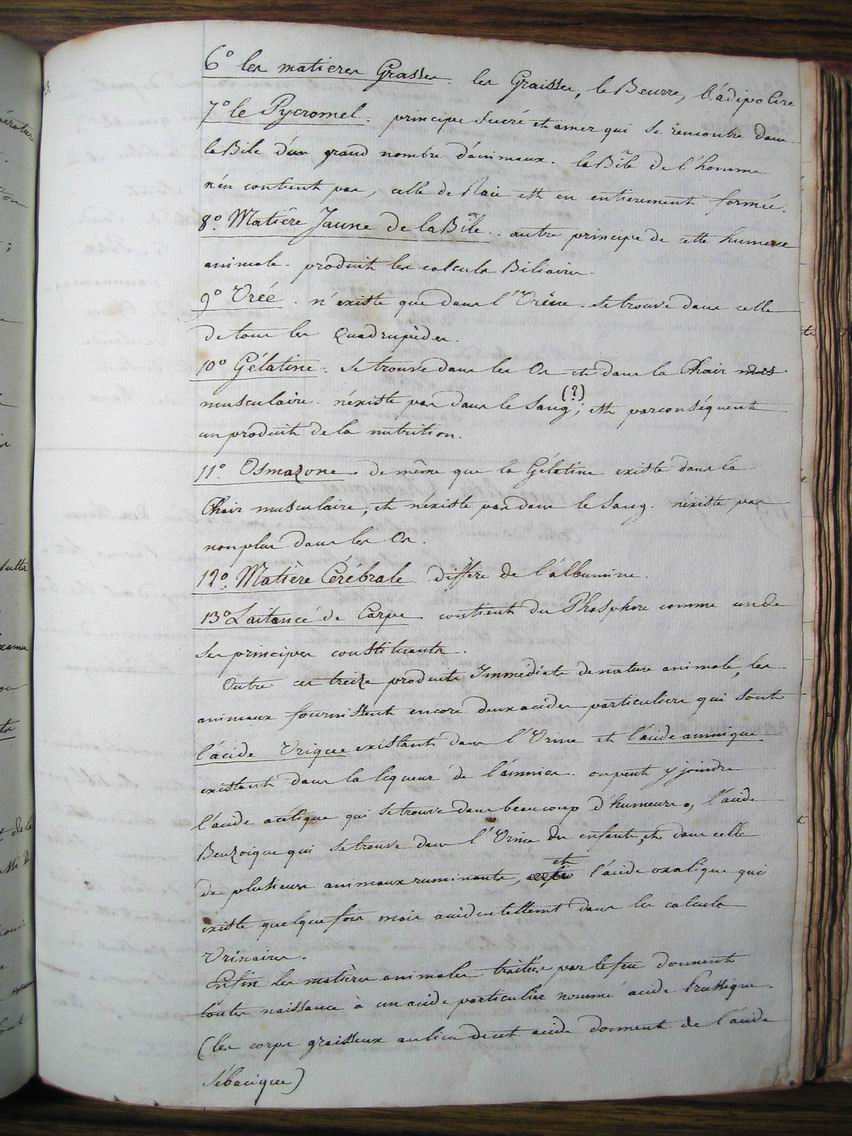 6° les matieres Grasses. les Graisses, le Beurre, l'adipocire
7° le Pycromel. principe sucré et amer qui se rencontre dans
la Bile d'un grand nombre d'animaux. la Bile de l'homme
n'en contient pas, celle de Raie est en entierement formée.
8° Matière Jaune de la Bîle. autre principe de cette humeur
animale. produit les calculs Biliaires.
9° Urée. n'existe que dans l'Urine. se trouve dans celle
de tous les Quadrupèdes.
10° Gélatine. se trouve dans les Os et dans la Chair
musculaire. n'existe pas dans le Sang (?); est par conséquent
un produit de la nutrition.
11° Osmazone. de même que la Gélatine existe dans la
Chair musculaire, et n'existe pas dans le Sang. n'existe pas
non plus dans les Os.
12° Matière Cérébrale. différe de l'albumine.
13° Laitance de Carpe contient du Phosphore comme un de
ses principes constituants.
Outre ces treize produits Immédiats de nature animale, les
animaux fournissent encore deux acides particuliers qui sont
l'acide Urique existant dans l'Urine et l'acide amnique
existant dans la liqueur de l'amnios. on peut y joindre
l'acide acétique qui se trouve dans beaucoup d'humeurs, l'acide
Benzoique qui se trouve dans l'Urine des enfants, et dans celle
de plusieurs animaux ruminants, et l'acide oxalique qui
existe quelque fois mais accidentellement dans les calculs
Urinaires.
Enfin les matières animales traitées par le feu donnent
toutes naissance à un acide particulier nommé acide Prussique
(les corps graisseux au lieu de cet acide donnent de l'acide
sébacique)